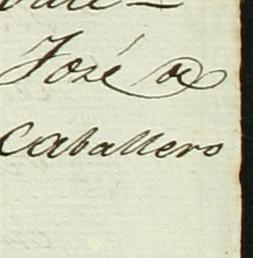 José de
Caballero